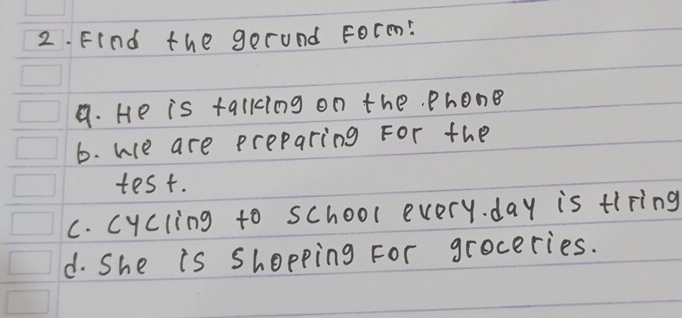 2. Find the gerund Form:
a. He is talking on the phone
b. we are preparing For the
test.
c. cycling to school every.day is tiring
d. She is shopping For groceries.